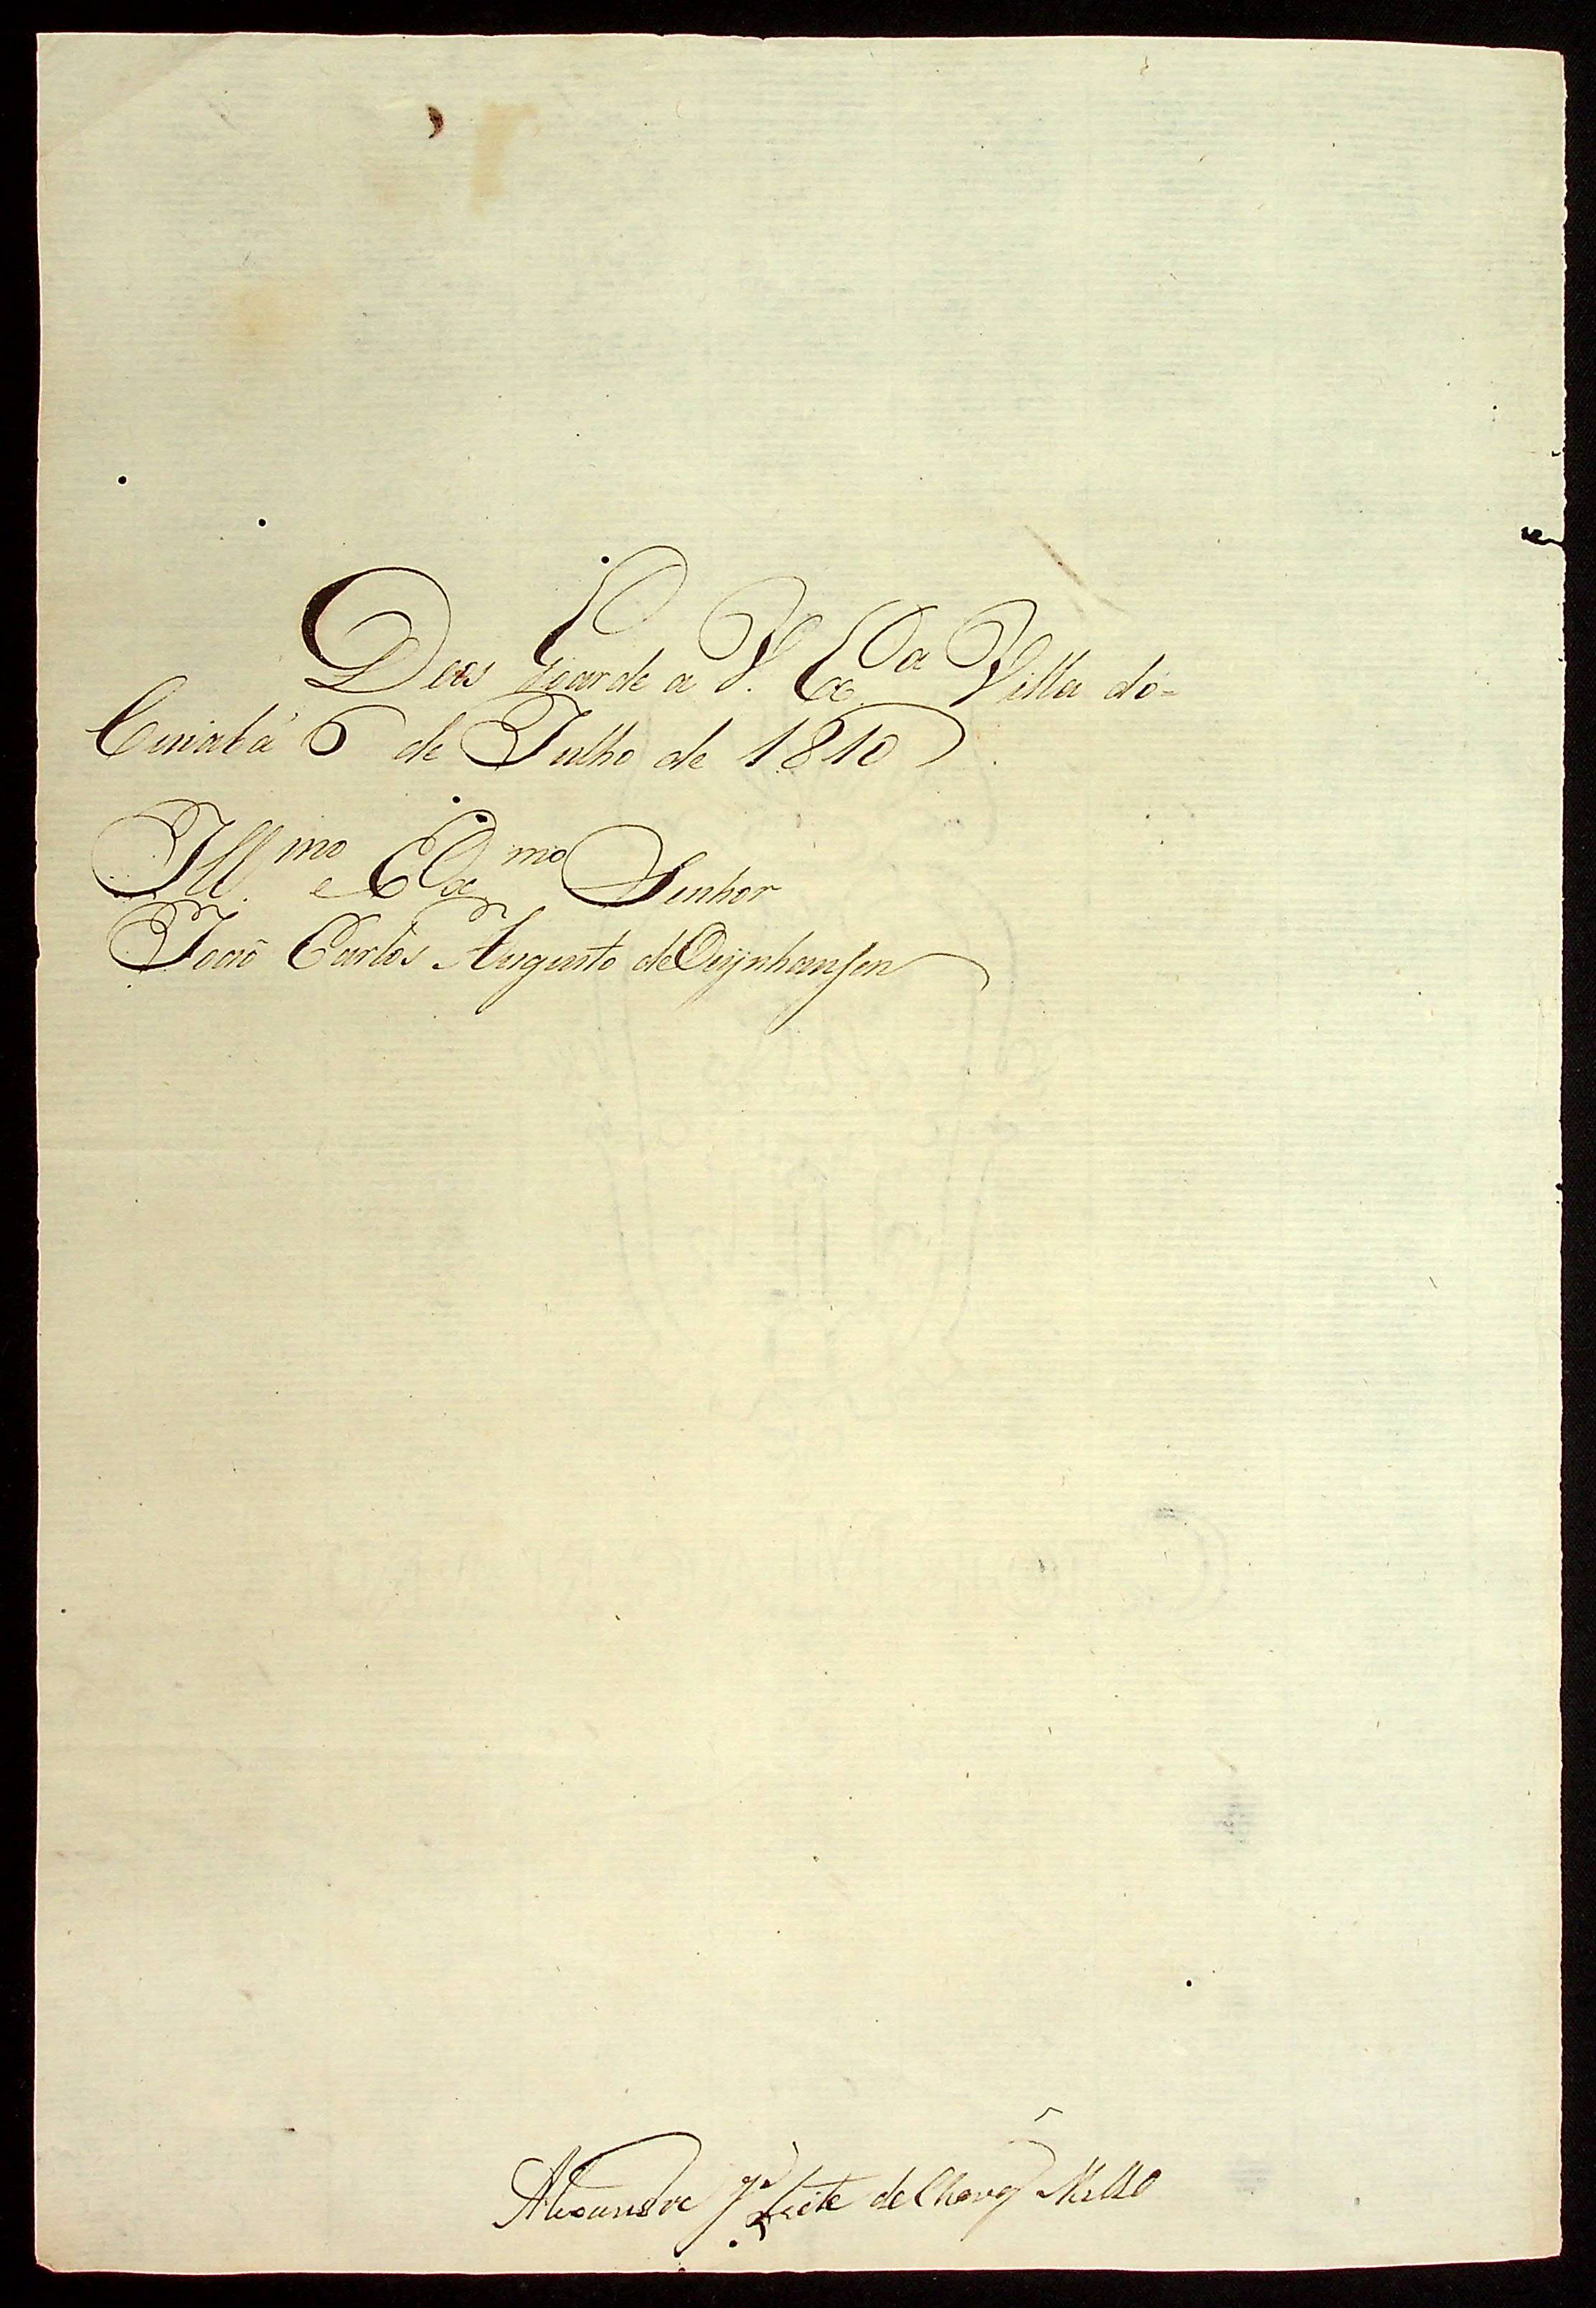 Deos Goarde a V. Ex.a Villa do=
Cuiabá 6 de Julho de 1810
Ill.mo e Ex.mo Senhor
João Carlos Augusto de Oeynhausen
Alexandre Je Leite de Chaves Mello